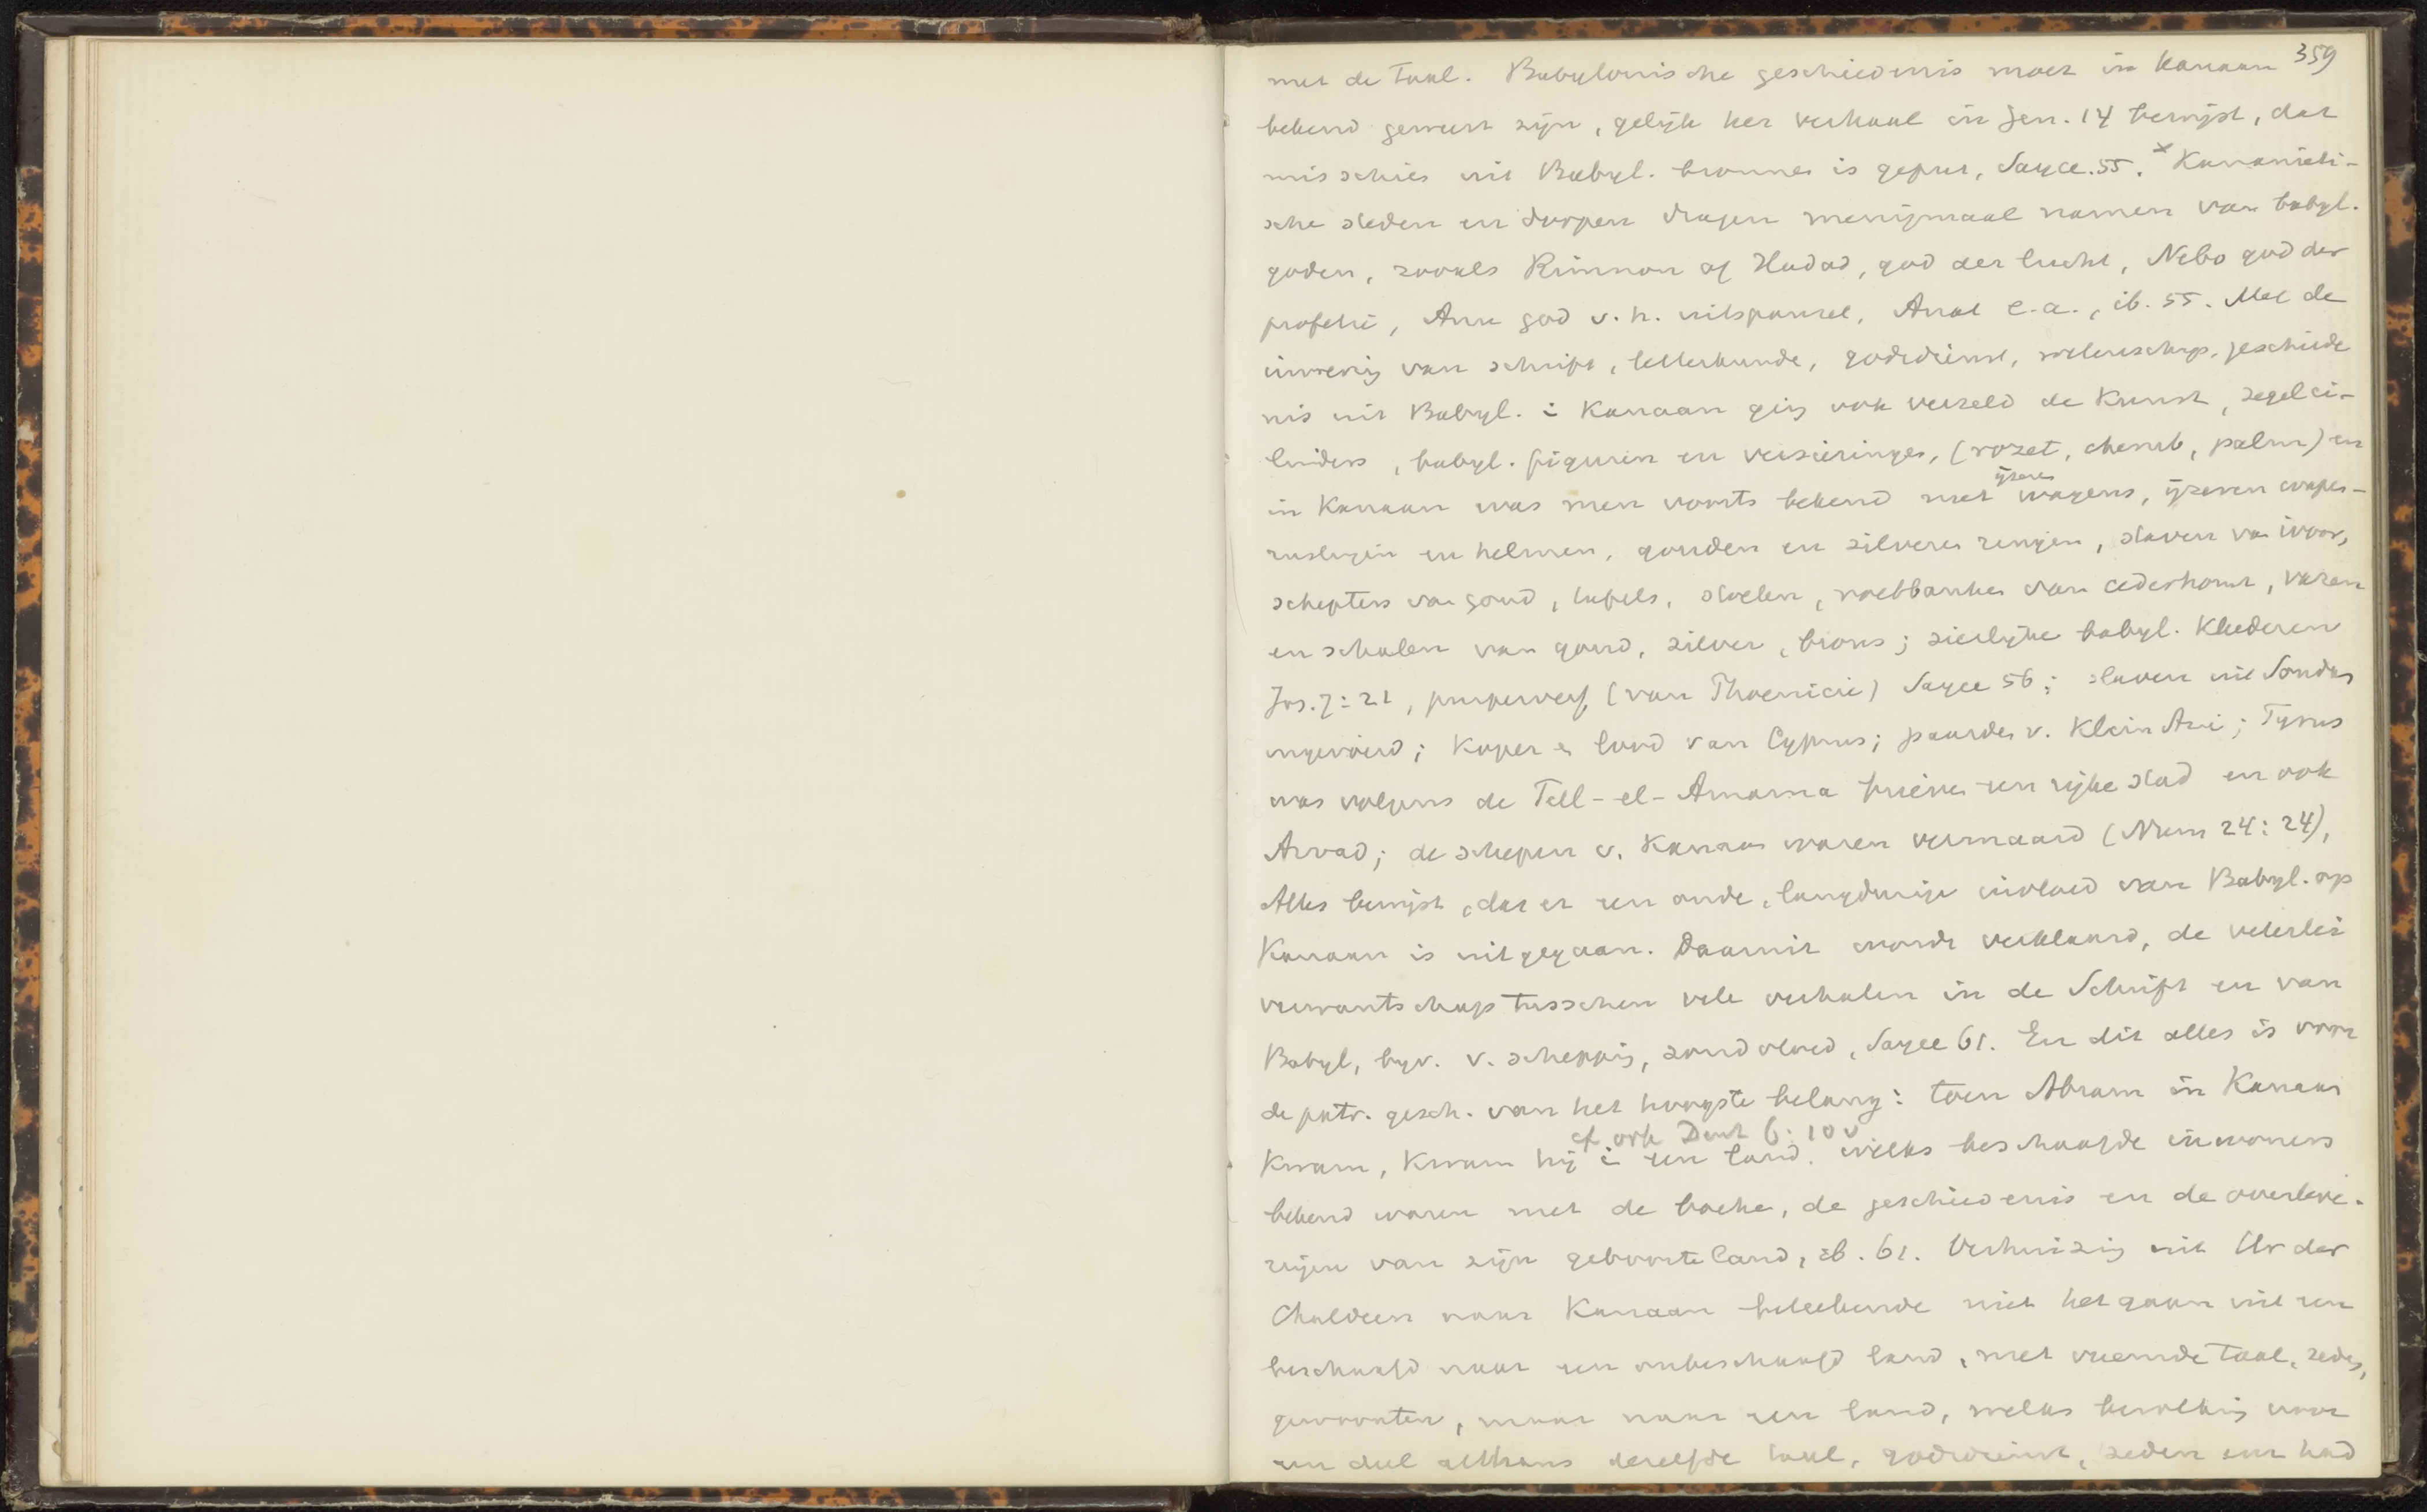 359
met de taal. Babylonische geschiedenis moet in Kanaan
bekend geweest zijn, gelijk het verhaal in Gen. 14 bewijst, dat
misschien uit Babyl. bronnen is geput, Sayce. 55. x Kanaanieti-
sche steden en dorpen dragen menigmaal namen van babyl.
goden, zooals Rimmon of Hadad, god der lucht, Nebo god der
profetie, Anu god v. h. uitspansel, Anat e.a., ib. 55. Met de
invoering van schrift, letterkunde, godsdienst, wetenschap, geschiede
nis uit Babyl. in Kanaan ging ook verzeld de Kunst, zegelci-
linders, babyl. figuren en versieringen, (rozet, cherub, palm) en
ijzeren
in Kanaan was men voorts bekend met wagens, ijzeren wapen-
rustingen en helmen, gouden en zilveren ringen, staven van ivoor,
schepters van goud, tafels, stoelen, voetbanken van cederhout, vazen
en schalen van goud, zilver, brons; sierlijke babyl. Kleederen
Joz. 7:21, purperverf (van Phoenicie) Sayce 56; slaven uit Soudan
ingevoerd; Koper en lood van Cyprus; paarden v. Klein Azie; Tyrus
was volgens de Tell-el-Amarna brieven een rijke stad en ook
Arvad; de schepen v. Kanaan waren vermaard (Num 24:24),
Alles bewijst, dat er een oude, langdurige invloed van Babyl. op
Kanaan is uitgegaan. Daaruit wordt verklaard, de velerlei
verwantschap tusschen vele verhalen in de Schrift en van
Babyl, byv. v. schepping, zondvloed, Sayce 61. En dit alles is voor
de patr. gesch. van het hoogste belang: toen Abram in Kanaan
cf ook Deut 6:10v
kwam, kwam hij in een land, welks beschaafde inwoners
bekend waren met de boeken, de geschiedenis en de overleve-
ringen van zijn geboorteland, ib. 61. Verhuizing uit Ur der
Chaldeen naar Kanaan beteekende niet het gaan uit een
beschaafd naar een onbeschaafd land, met vreemde taal, zeden,
gewoonten, maar naar een land, welks bevolking voor
een deel althans dezelfde taal, godsdienst, zeden enz had